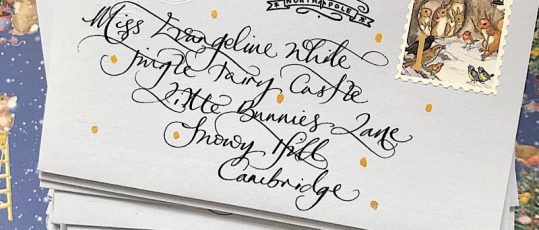 NORTH POLE
Miss Evangeline White
Jingle Fairy Castle
Little Bunnies Lane
Snowy Hill
Cambridge